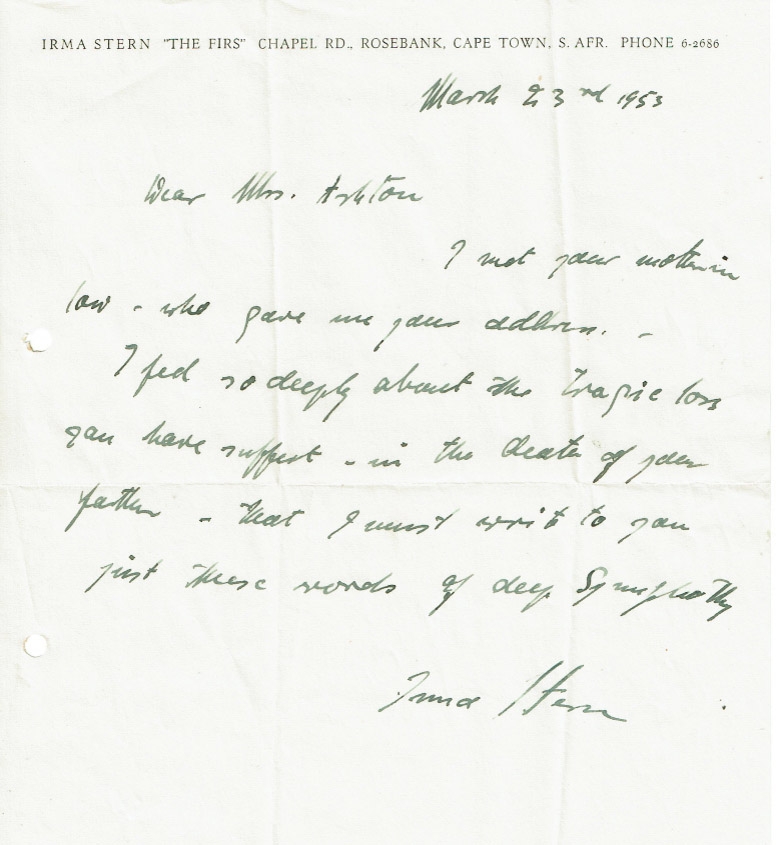 IRMA STERN "THE FIRS" CHAPEL RD., ROSEBANK, CAPE TOWN, S. AFR. PHONE 6-2686
March 23rd 1953
Dear Mrs. Ashton
I met your mother in
law - who gave me your address. -
I feel so deeply about the tragic loss
you have suffert - in the death of your
father - that I must write to you
just these words of deep Symphathy
Irma Stern